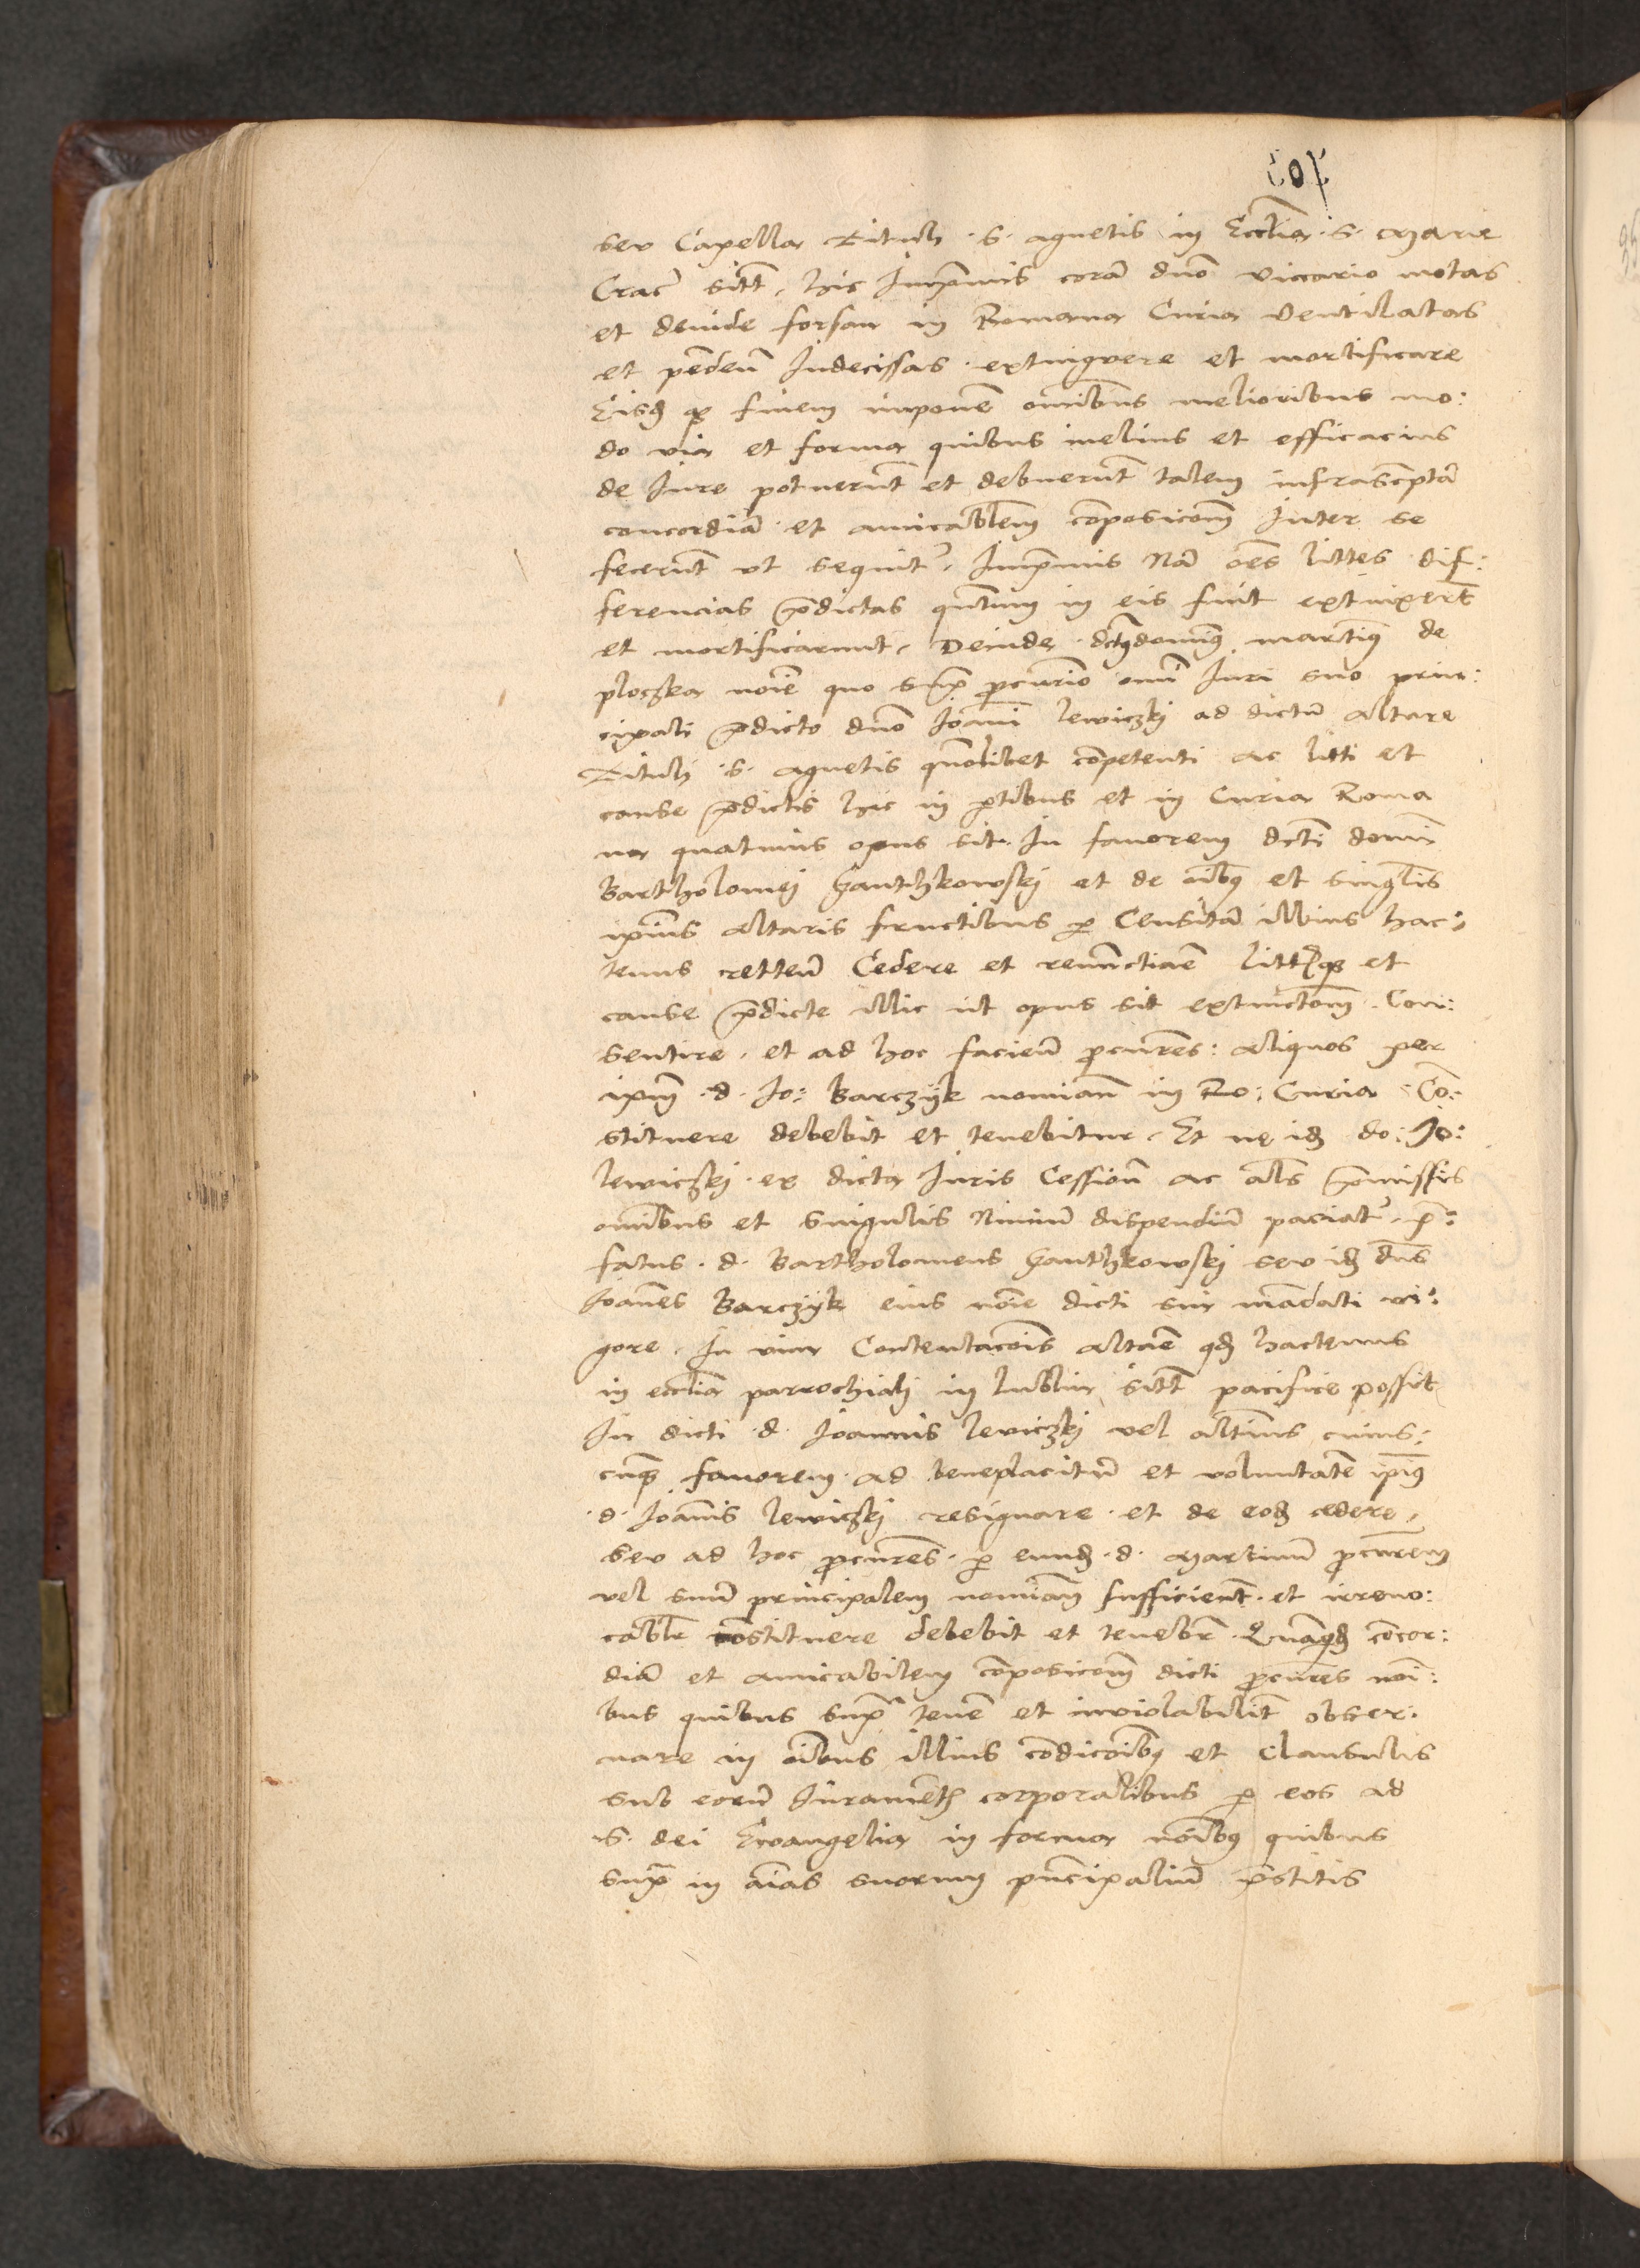 seu Capella Tituli · S · agnetis in Ecclia · S · Marie
Crac̄ sitt̄, hic Imprimis corā dno viccario motas
et deinde forsan in Romana Curia ventilatas
et pēdeñ Indecissas · extinguere et mortificare
Eisdē q3 finem imponē omibus melioribus mo:
do via et forma quibus melius et efficacius
de Iure potuerūt et debuerūt talem infrascptā
concordiā et amicablem cōposicoem Inter se
fecerūt vt sequit᷑, Imprimis Nā oēs littes dif:
ferencias p̄dictas qntum in eis fuit extinxer̄t
et mortificarunt, Deinde dctq3 domins martins de
ploczka noie quo supra procurio omi Iuri suo prin:
cipali p̄dicto dno Ioāni lewiczki ad dictū Altare
Tituli · S · agnetis qnolibet cōpetenti ac litti et
cause p̄dictis hic in ptibus et in Curia Roma
na quatenus opus sit In fauorem dcti domi
Bartholomei Ganthkowski et de oibus et singlis
ipius altaris fructibus p Censitā illius hac:
tenus retteñ Cedere et renunctiāe litt q3 et
cause p̄dicte illic ut opus sit extinctoem Con:
sentire, et ad hoc facieñ procures: aliquos per
ipm · d · Io: Barczyk nomiañ in Ro: Curia Cō:
stituere debebit et tenebitur, Et ne idē do: Io:
lewiczki ex dicta Iuris Cessioñ ac alĩs p̄missis
omibus et singulis Nimiū dispendiū paciat᷑, p̄:
fatus · d · Bartholomeus Ganthkowski seu idē dns
Ioānes Barczyk eius noie dicti sui mādati vi:
gore, In vim Contentacois altare qd hactenus
in ecclia parrochiali in lublin sitt̄ pacifice possit
In dicti · d · Ioannis lewiczki vel alterius cuius:
cuq3 fauorem ad beneplacitū et voluntatē ipius
· d · Ioānis lewiczki resignare · et de eodē cedere,
seu ad hoc procures · p eundē · d · Martinū procurem
vel suū principalem nomiam sufficient · et irreuo:
cablr constituere debebit et tenebr · Quāquidē cōcor:
diā et amicabilem cōposicoem dicti procures noi:
bus quibus supra tenē et inviolabilit obser:
uare in oibus illius cōdicoibus et Clausulis
sub eorū Iuramētis corporalibus p eos ad
· S · dei Ewangelia in forma noibus quibus
supra in aias suorum pncipaliū p̄stitis